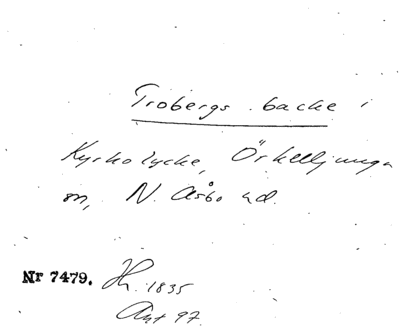 Trobergs backe i
Kyrkolycke, Örkelljunga
sn, N. Åsbo hd.
Nr 7479. Hr. 1835
Ant 97.